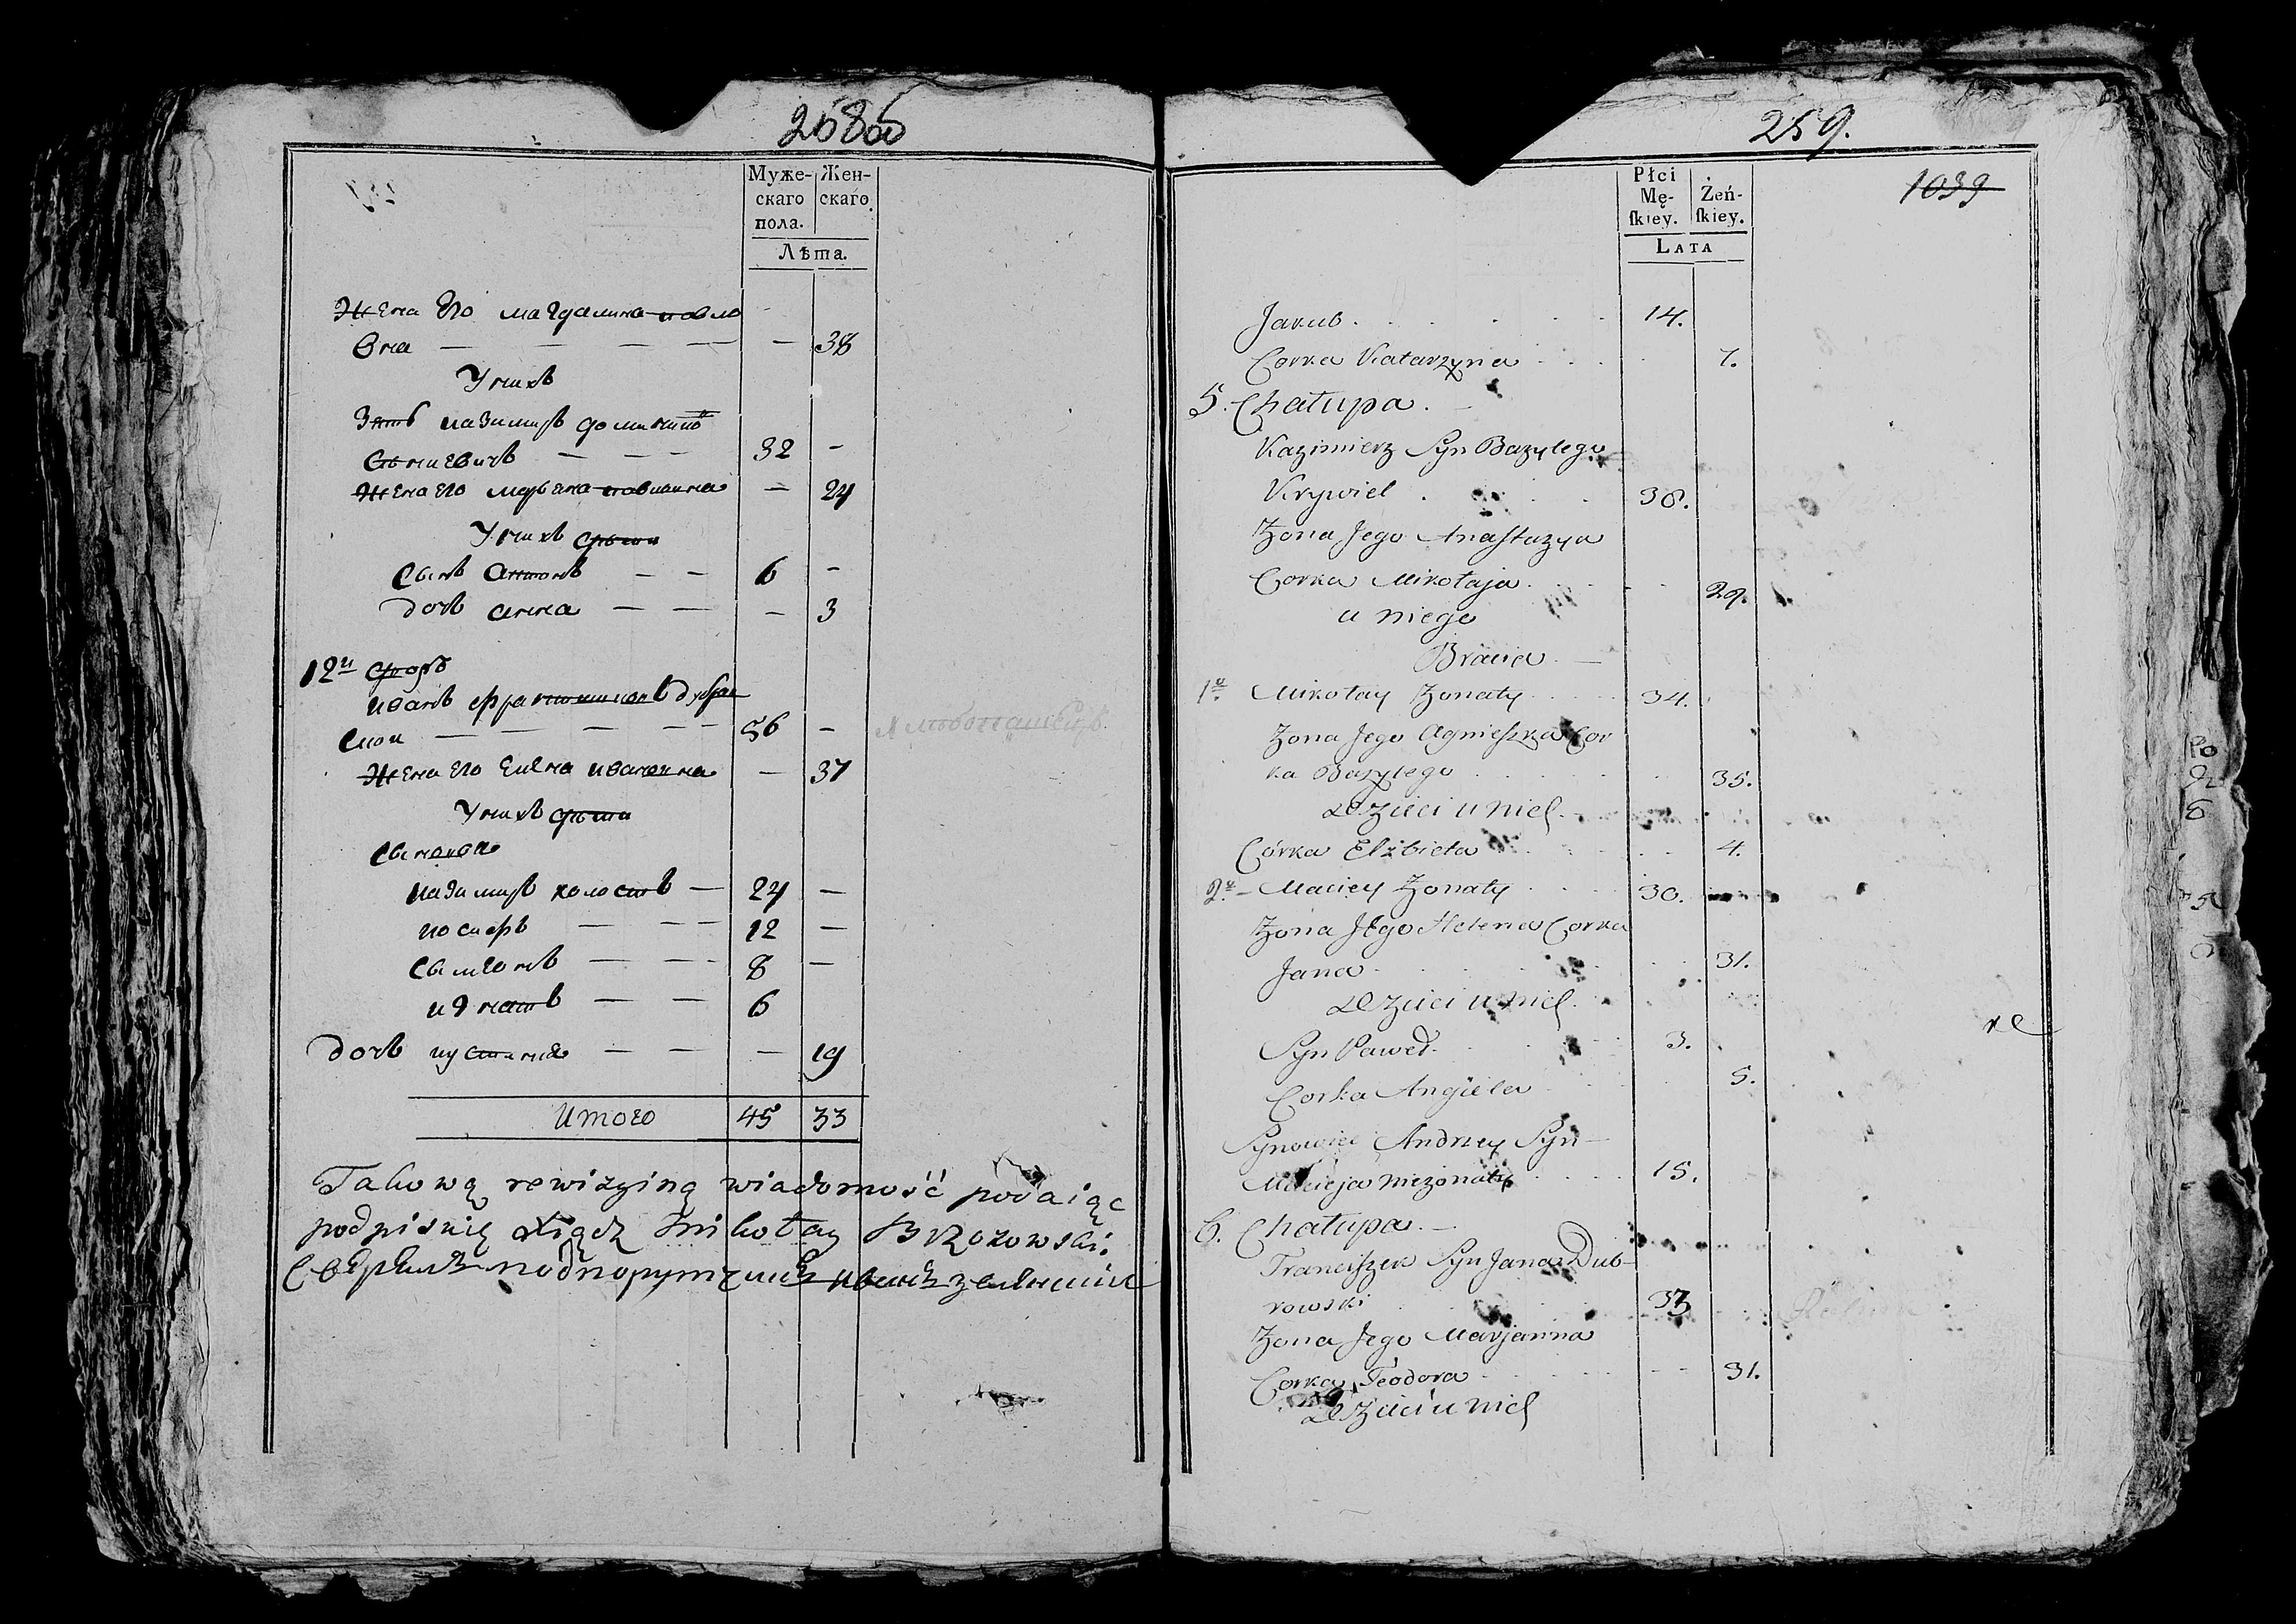 258об
Муже-
скаго
пола.
Жен-
скаго.
Лѣта.
Жена его магдалина павло
вна — — — — — 38
У нихъ
Зять казимиръ доминикъ
32 —
Жена его марьяна — 24
У нихъ дѣти
Сынъ антонъ — — 6 —
дочь анна — — — 3
12й дворъ
иванъ дубров
ски — — — — 56 —
Жена его елена ивановна — 37
У нихъ дѣти
Сыновья
казимиръ холостъ — 24 —
иосифъ — — 12 —
сымонъ — — 8 —
игнатъ — — 6
дочь юстина — — — 19
Итого 45 33
Takową rewizyiną wiadomość podaiąc
podpisuię Xiądz Mikołay Brzozowski.
Сверялъ подпорутчикъ
259.
1039
Płci
Mę-
ſkiey.
Żeń-
ſkiey.
LATA
Jakub . . . . . . 14.
Corka Katarzyna . . . . 7.
5. Chałupa. —
Kazimierz Syn Bazylego
Krywiel . . . . 38.
Żona Jego Anastazya
Corka Mikołaja . . . 29.
u niego
Bracia. —
1y. Mikołay Żonaty . . . 34.
Żona Jego Agnieszka Cor
ka Bazylego . . . . . 35.
Dzieci u nich.
Córka Elżbieta . . . . 4.
2y. — Maciey Żonaty . . . 30.
Żona Jego Helena Corka
Jana . . . . . 31.
Dzieci u nich.
Syn Paweł. . . . . 3.
Corka Angiela . . . 5.
Synowiec Andrzey Syn —
Macieja nieżonaty . . . . 15.
6. Chałupa. —
Franciszek Syn Jana Dub-
rowski . . . . 33
Żona Jego Marjanna
Corka Teodora . . . . 31.
Dzieci u nich